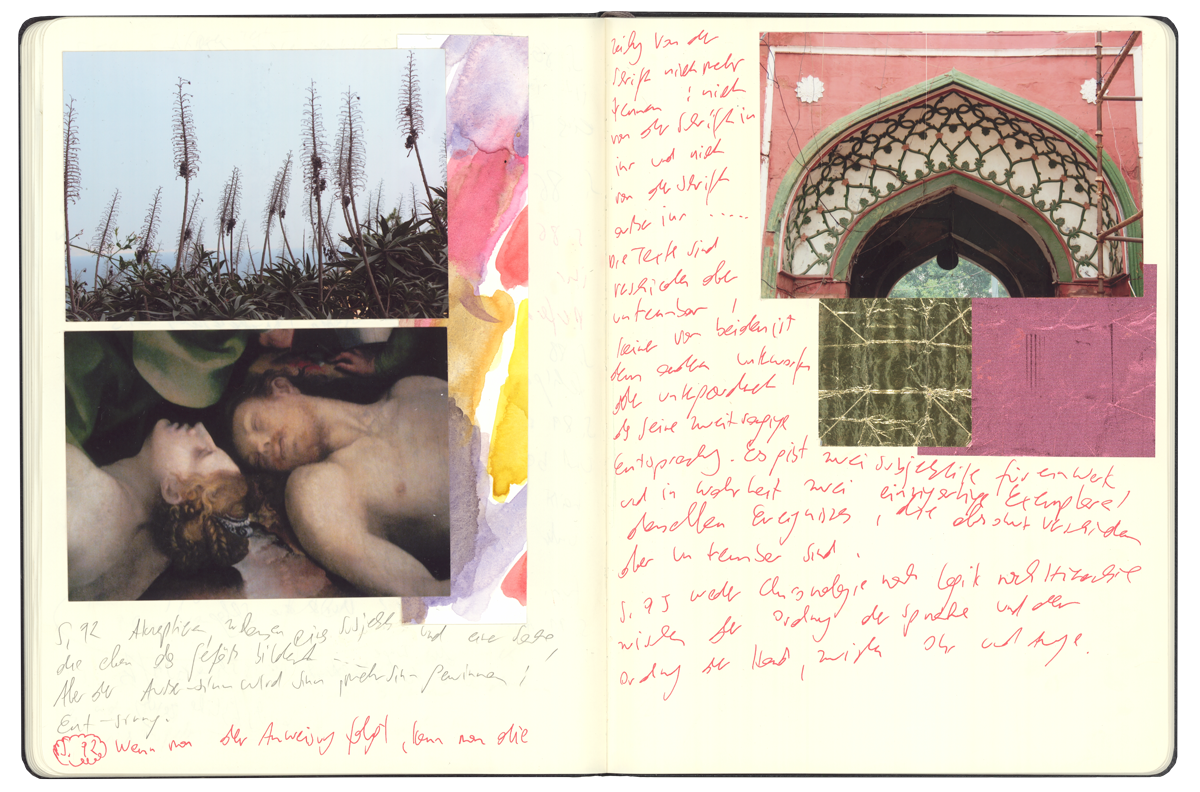 S. 92 Akzeptieren, zulassen eines Subjekts und eine Seite,
die eben das Gefäß bildet
Aber der Außer-sinn wird Sinn, mehr Sinn gewinnen!
Ent-sinnung.
S. 92 Wenn man der Anweisung folgt, kann man die
von der
Schrift nicht mehr
trennen! nicht
von der Schrift in
ihr und nicht
von der Schrift
außer ihr .....
Die Texte sind
verschieden aber
untrennbar!
keiner von beiden ist
dem anderen unterworfen
oder untergeordnet
als seine zweitrangige
Entsprechung. Es gibt zwei Subjekte für ein Werk
und in Wahrheit zwei einzigartige Exemplare
desselben Ereignisses, die absolut verschieden
aber untrennbar sind.
S. 95 weder Chronologie noch Logik noch Hierarchie
zwischen der Ordnung der Sprache und der
Ordnung der Hand, zwischen Ohr und Auge.